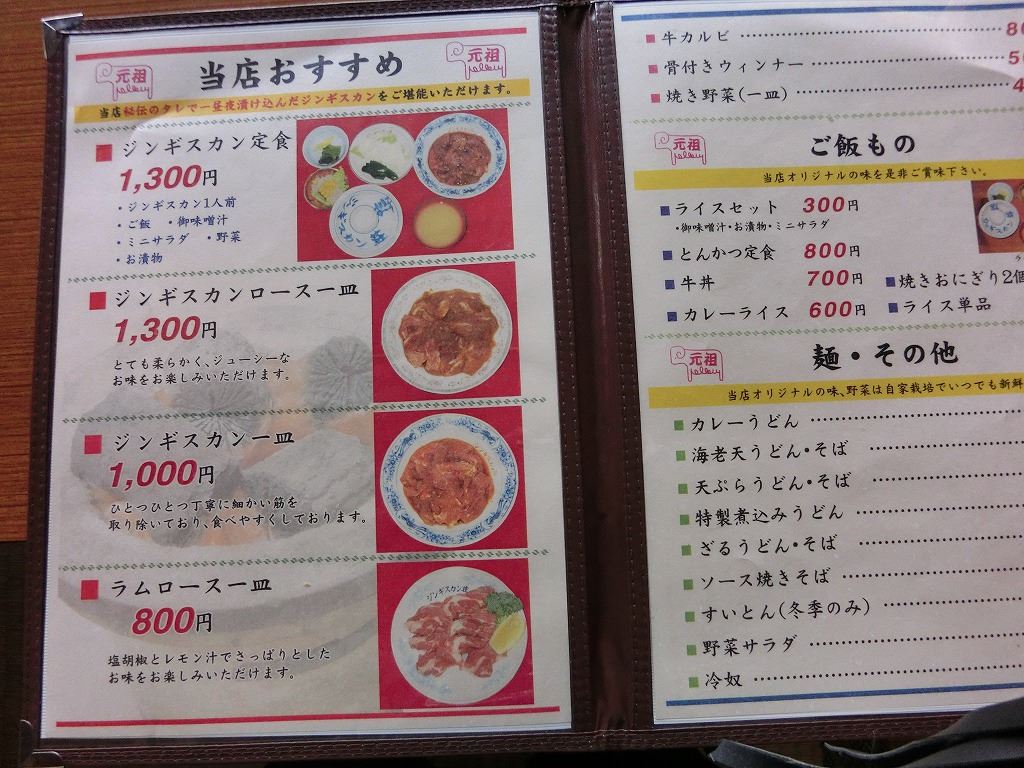 元祖
当店おすすめ
元祖
当店秘伝のタレで一昼夜漬け込んだジンギスカンをご堪能いただけます。
■ジンギスカン定食
1,300円
・ジンギスカン1人前
・ご飯 ・御味噌汁
・ミニサラダ ・野菜
・お漬物
■ジンギスカンロース一皿
1,300円
とても柔らかく、ジューシーな
お味をお楽しみいただけます。
■ジンギスカン一皿
1,000円
ひとつひとつ丁寧に細かい筋を
取り除いており、食べやすくしております。
■ラムロース一皿
800円
塩胡椒とレモン汁でさっぱりとした
お味をお楽しみいただけます。
■牛カルビ
■骨付きウィンナー
■焼き野菜(一皿)
元祖
ご飯もの
当店オリジナルの味を是非ご賞味下さい。
■ライスセット 300円
・御味噌汁・お漬物・ミニサラダ
■とんかつ定食 800円
■牛丼 700円 ■焼きおにぎり2個
■カレーライス 600円 ■ライス単品
元祖
麺・その他
当店オリジナルの味、野菜は自家栽培でいつでも新鮮
■カレーうどん
■海老天うどん・そば
■天ぷらうどん・そば
■特製煮込みうどん
■ざるうどん・そば
■ソース焼きそば
■すいとん(冬季のみ)
■野菜サラダ
■冷奴